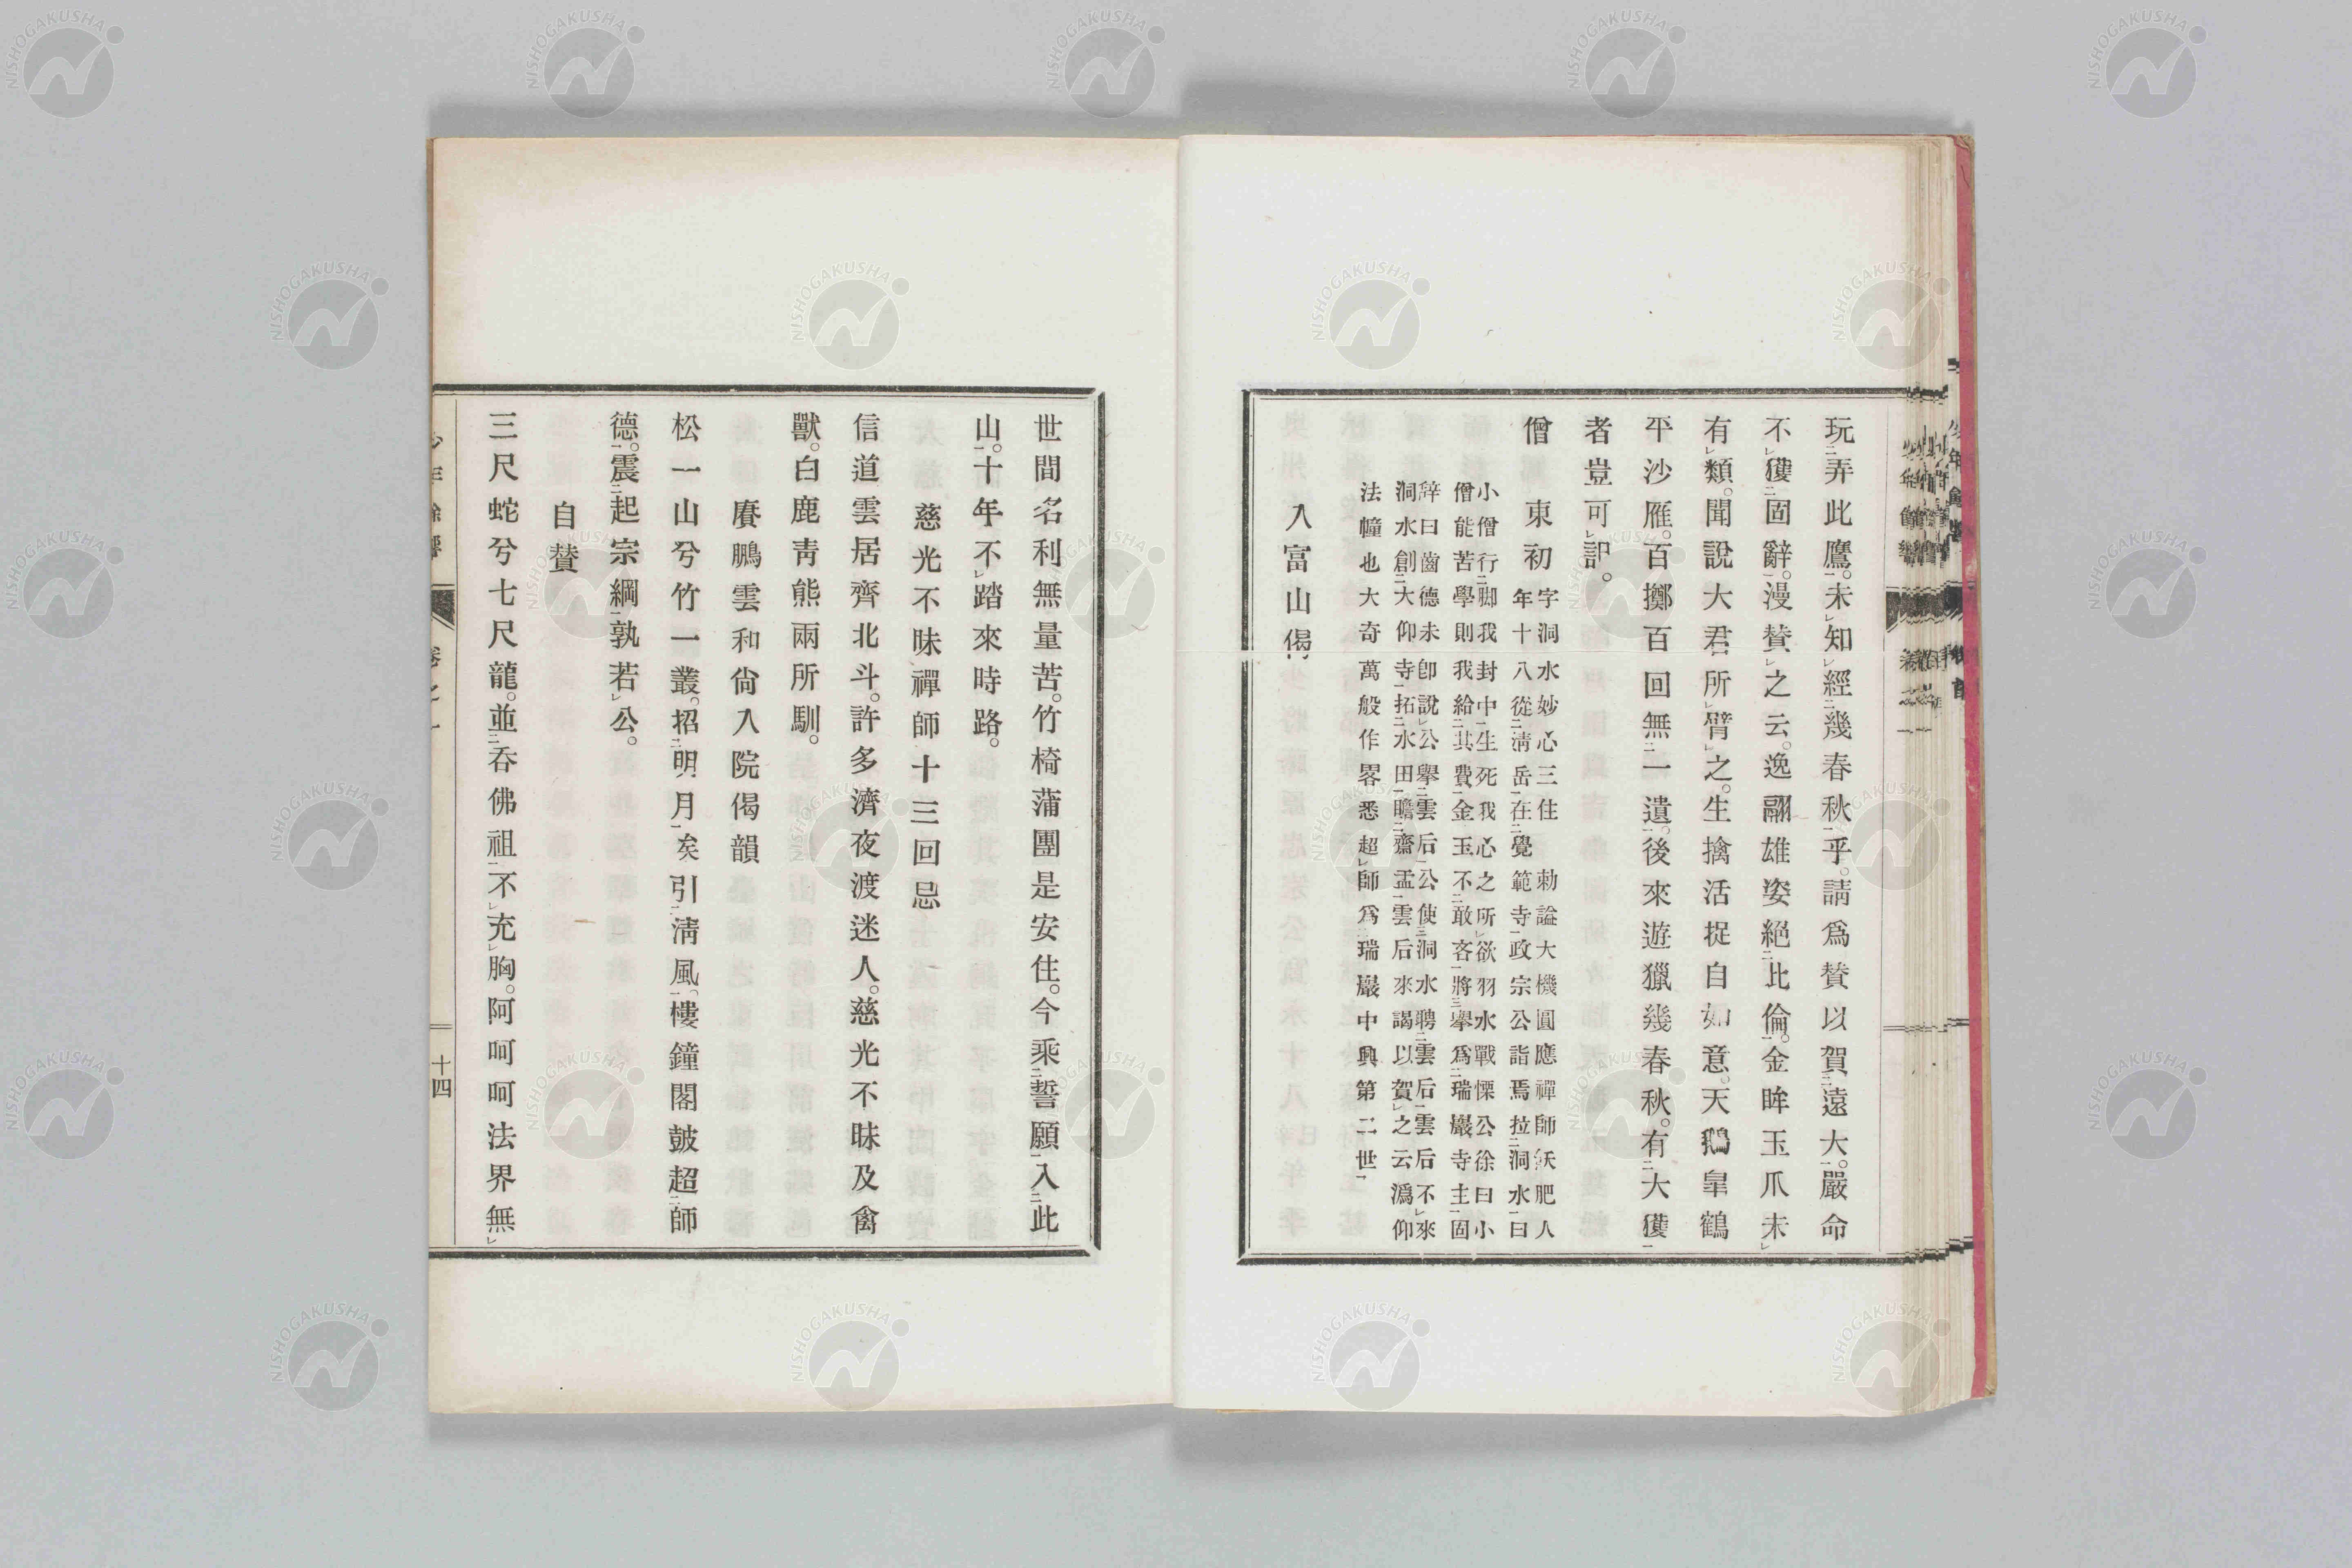 玩弄此鷹。未知經幾春秋乎。請爲賛以賀遠大。嚴命
不獲固辭。漫賛之云。逸翮雄姿絕比倫。金眸玉爪未
有類。聞說大君所臂之。生擒活捉自如意。天鵝皐鶴
平沙雁。百擲百回無一遺。後來遊獵幾春秋。有大獲
者豈可記。
僧 東初
字洞水妙心三住 勅謚大機圓應禪師妖肥人
年十八從淸岳在覺範寺政宗公詣焉拉洞水曰
小僧行脚我封中生死我心之所欲羽水戰慄公徐曰小
僧能苦學則我給其費金玉不敢吝將擧爲瑞巖寺主固
辭曰齒德未卽說公擧雲后公使洞水聘雲后雲后不來
洞水創大仰寺拓水田瞻齋盂雲后來謁以賀之云潙仰
法幢也大奇萬般作畧悉超師爲瑞巖中興第二世
入富山偈
世間名利無量苦。竹椅蒲團是安住。今乘誓願入此
山。十年不踏來時路。
慈光不昧禪師十三回忌
信道雲居齊北斗。許多濟夜渡迷人。慈光不昧及禽
獸。白鹿靑熊兩所馴。
賡鵬雲和尙入院偈韻
松一山兮竹一叢。招明月矣引淸風。樓鐘閣皷超師
德。震起宗綱孰若公。
自賛
三尺蛇兮七尺龍。並呑佛祖不充胸。阿呵呵法界無
十四
NISHOGAKUSHA